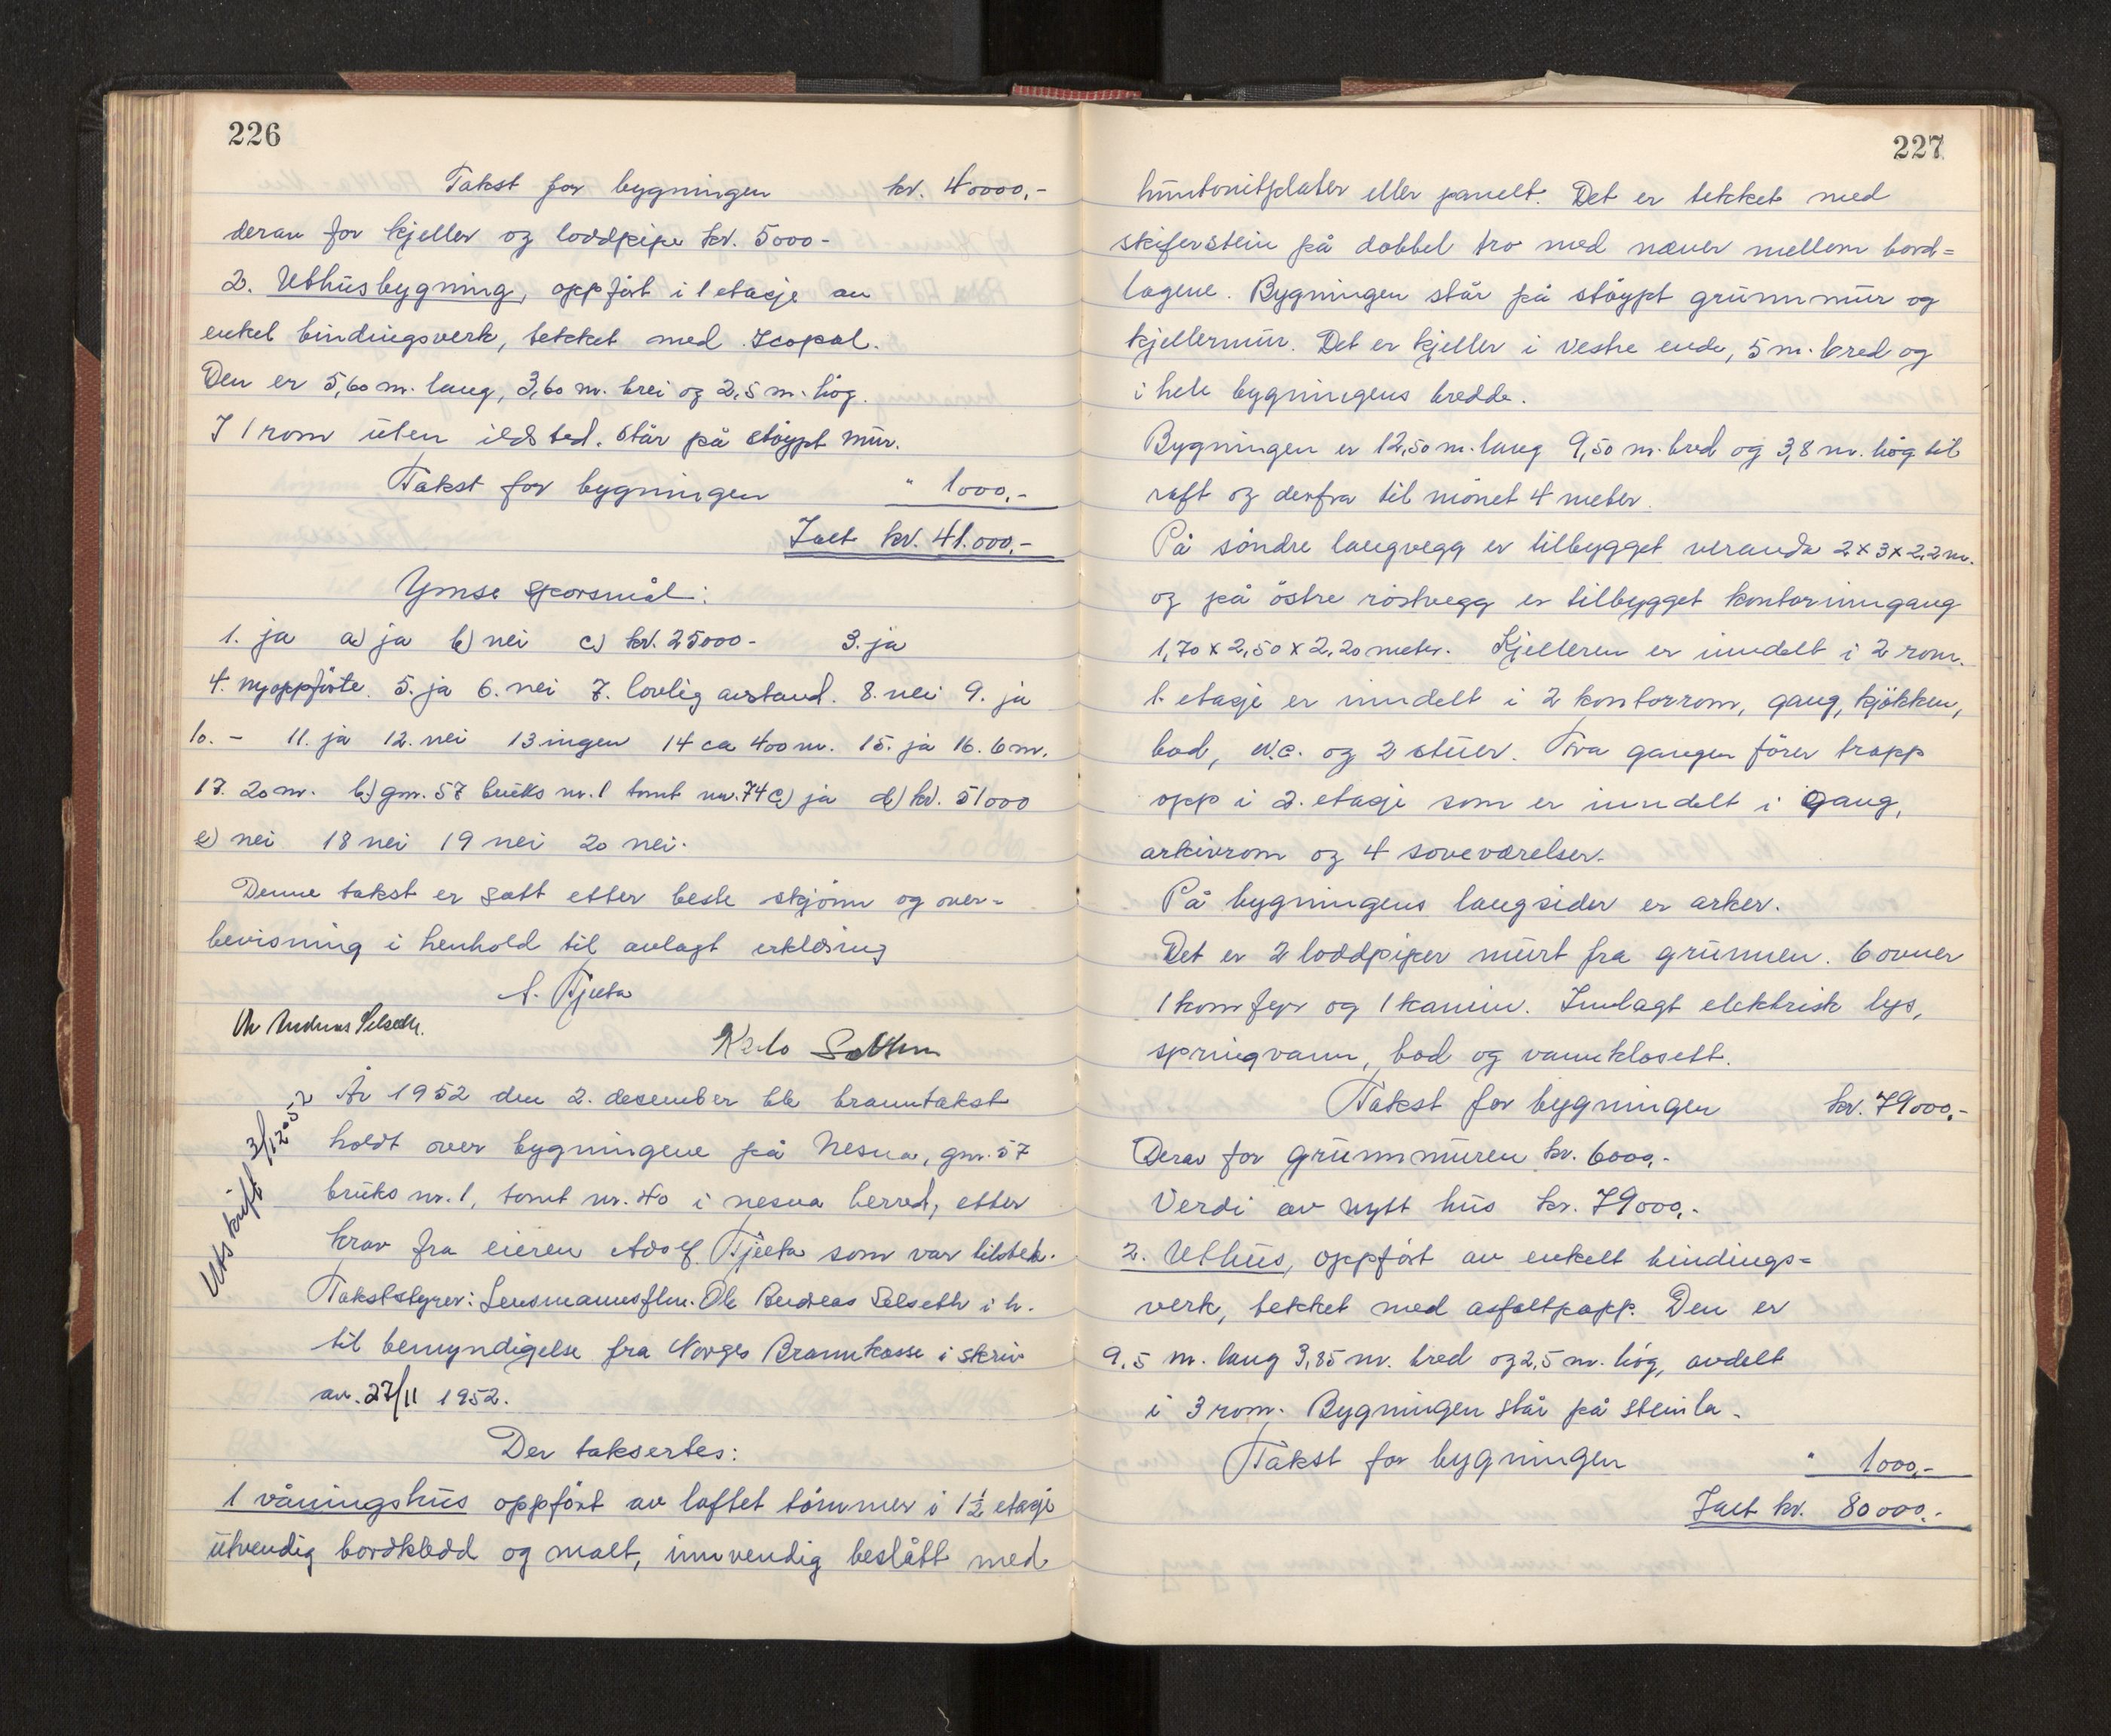 226
Takst for bygningen kr. 40000,-
derav for kjeller og loddpipe kr. 5000-
2. Uthusbygning, oppfört i 1 etasje av
enkel bindingsverk, tekket med Icopal.
Den er 5,60 m. lang, 3,60 m. brei og 2,5 m. hög.
I 1 rom uten ildsted. Står på stöypt mur.
Takst for bygningen " 1000,-
Ialt kr. 41.000,-
Ymse spörsmål:
1. ja a) ja b) nei c) kr. 25000- 3. ja
4. nyoppförte. 5. ja 6. nei 7. lovlig avstand. 8. nei 9. ja
10. - 11. ja 12. nei 13 ingen 14 ca 400 m. 15. ja 16. 6 m.
17. 20 m. b) gnr. 57 bruks nr. 1 tomt nr. 74 c) ja d) kr. 51000
e) nei 18 nei 19 nei 20 nei.
Denne takst er satt etter beste skjönn og over-
bevisning i henhold til avlagt erklæring
A. Tjeeta
Karlo
Utskrift 3/12-52
År 1952 den 2. desember ble branntakst
holdt over bygningene på Nesna, gnr. 57
bruks nr. 1, tomt nr. 40 i nesna herred, etter
krav fra eieren Adolf Tjeeta som var tilstede.
Takststyrer: Lensmannsflm. Ole Andreas Selseth i h.
til bemyndigelse fra Norges Brannkasse i skriv
av. 27/11 1952.
Der taksertes:
1 våningshus oppfört av laftet tömmer i 1½ etasje
utvendig bordkledd og malt, innvendig beslått med
227
huntonitplater eller panelt. Det er tekket med
skiferstein på dobbel tro med næver mellom bord=
lagene. Bygningen står på stöypt grunnmur og
kjellermur. Det er kjeller i vestre ende, 5 m. bred og
i hele bygningens bredde.
Bygningen er 12,50 m. lang 9,50 m. bred og 3,8 m. hög til
raft og derfra til mönet 4 meter.
På söndre langvegg er tilbygget veranda 2 x 3 x 2,2 m.
og på östre röstvegg er tilbygget kontorinngang
1,70 x 2,50 x 2,20 meter. Kjelleren er inndelt i 2 rom.
1. etasje er inndelt i 2 kontorrom, gang, kjökken,
bad, w.c. og 2 stuer. Fra gangen förer trapp
opp i 2. etasje som er inndelt i gang,
arkivrom og 4 soveværelser.
På bygningens langsider er arker.
Det er 2 loddpiper murt fra grunnen. 6 ovner
1 komfyr og 1 kamin. Innlagt elektrisk lys,
springvann, bad og vannklosett.
Takst for bygningen kr. 79000,-
Derav for grunnmuren kr. 6000,-
Verdi av nytt hus kr. 79000,-
2. Uthus, oppfört av enkelt bindings=
verk, tekket med asfaltpapp. Den er
9,5 m. lang 3,85 m. bred og 2,5 m. hög, avdelt
i 3 rom. Bygningen står på steinla.
Takst for bygningen " 1000,-
Ialt kr. 80000,-